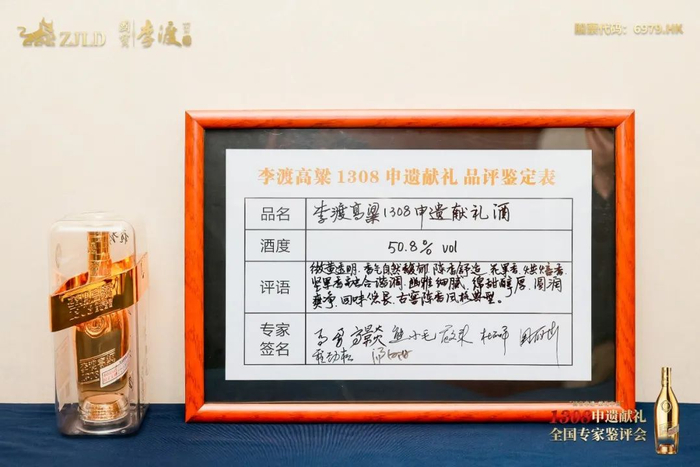 ZJLD 國寶李渡
股票代码：6979.HK
李渡高粱1308申遗献礼 品评鉴定表
品名 李渡高粱1308申遗献礼酒
酒度 50.8% vol
评语 微黄透明，香气自然馥郁，陈香舒适，花果香、烘焙香、
坚果香融合谐调，幽雅细腻，绵甜醇厚，圆润
爽净，回味悠长，古窖陈香风格典型。
专家
签名
1308申遗献礼
全国专家鉴评会